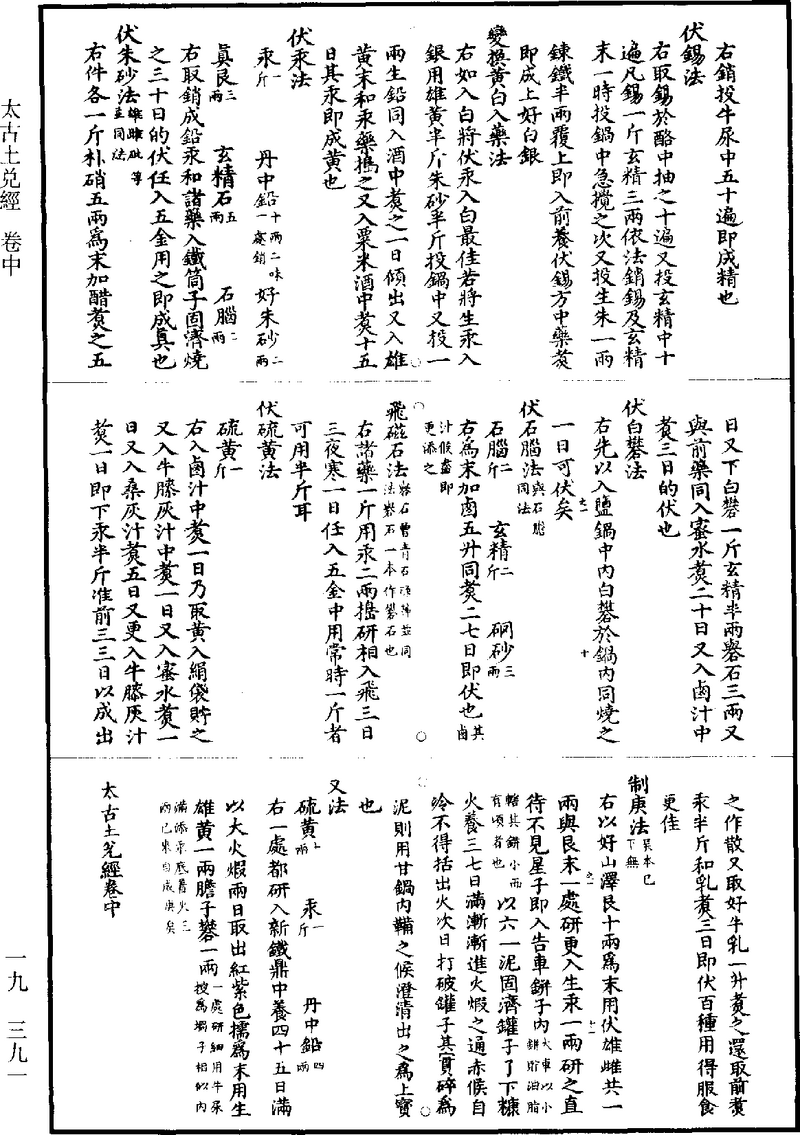 太古土兌經 卷中
右銷投牛尿中五十遍即成精也
伏錫法
右取錫於醋中抽之十遍又投玄精中十
遍凡錫一斤玄精三兩依法銷錫及玄精
末一時投鍋中急攪之次又投生朱一兩
鍊鐵半兩覆上即入前養伏錫方中藥煑
即成上好白銀
變換黃白入藥法
右如入白將伏汞入白最佳若將生汞入
銀用雄黃半斤朱砂半斤投鍋中又投一
兩生鉛同入酒中煑之一日傾出又入雄
黃末和汞藥搗之又入粟米酒中煑十五
日其汞即成黃也
伏汞法
汞一斤 丹中鉛十兩二味一處銷 好朱砂二兩
眞艮三兩 玄精石五兩 石腦二兩
右取銷成鉛汞和諸藥入鐵筒子固濟燒
之三十日的伏任入五金用之即成眞也
伏朱砂法雄雌砒等並同法
右件各一斤朴硝五兩爲末加醋煑之五
日又下白礬一斤玄精半兩礜石三兩又
與前藥同入蜜水煑二十日又入鹵汁中
煑三日的伏也
伏白礬法
右先以入鹽鍋中內白礬於鍋內同燒之
一日可伏矣
伏石腦法與石膽同法
石腦二斤 玄精二斤 硇砂三兩
右爲末加鹵五升同煑二七日即伏也其鹵
汁候盡即更添之
飛磁石法
右諸藥一斤用汞二兩搗研相入飛三日
三夜寒一日任入五金中用常時一斤者
可用半斤耳
伏硫黃法
硫黃一斤
右入鹵汁中煑一日乃取黃入絹袋貯之
又入牛膝灰汁中煑一日又入蜜水煑一
日又入桑灰汁煑五日又更入牛膝灰汁
煑一日即下汞半斤准前三三日以成出
之作散又取好牛乳一升煑之還取前煑
汞半斤和乳煑三日即伏百種用得服食
更佳
制庚法
右以好山澤艮十兩爲末用伏雄雌共一
兩與艮末一處研更入生汞一兩研之直
待不見星子即入告車鉼子內
以六一泥固濟罐子了下糠
火養三七日滿漸漸進火煆之通赤候自
冷不得括出火次日打破罐子其寶碎爲
泥則用甘鍋內鞴之候澄清出之爲上寶
也
又法
硫黃十兩 汞一斤 丹中鉛四兩
右一處都研入新鐵鼎中養四十五日滿
以大火煆兩日取出紅紫色擣爲末用生
雄黃一兩膽子礬一兩一處研細用牛尿
太古土兌經卷中
一九 三九一